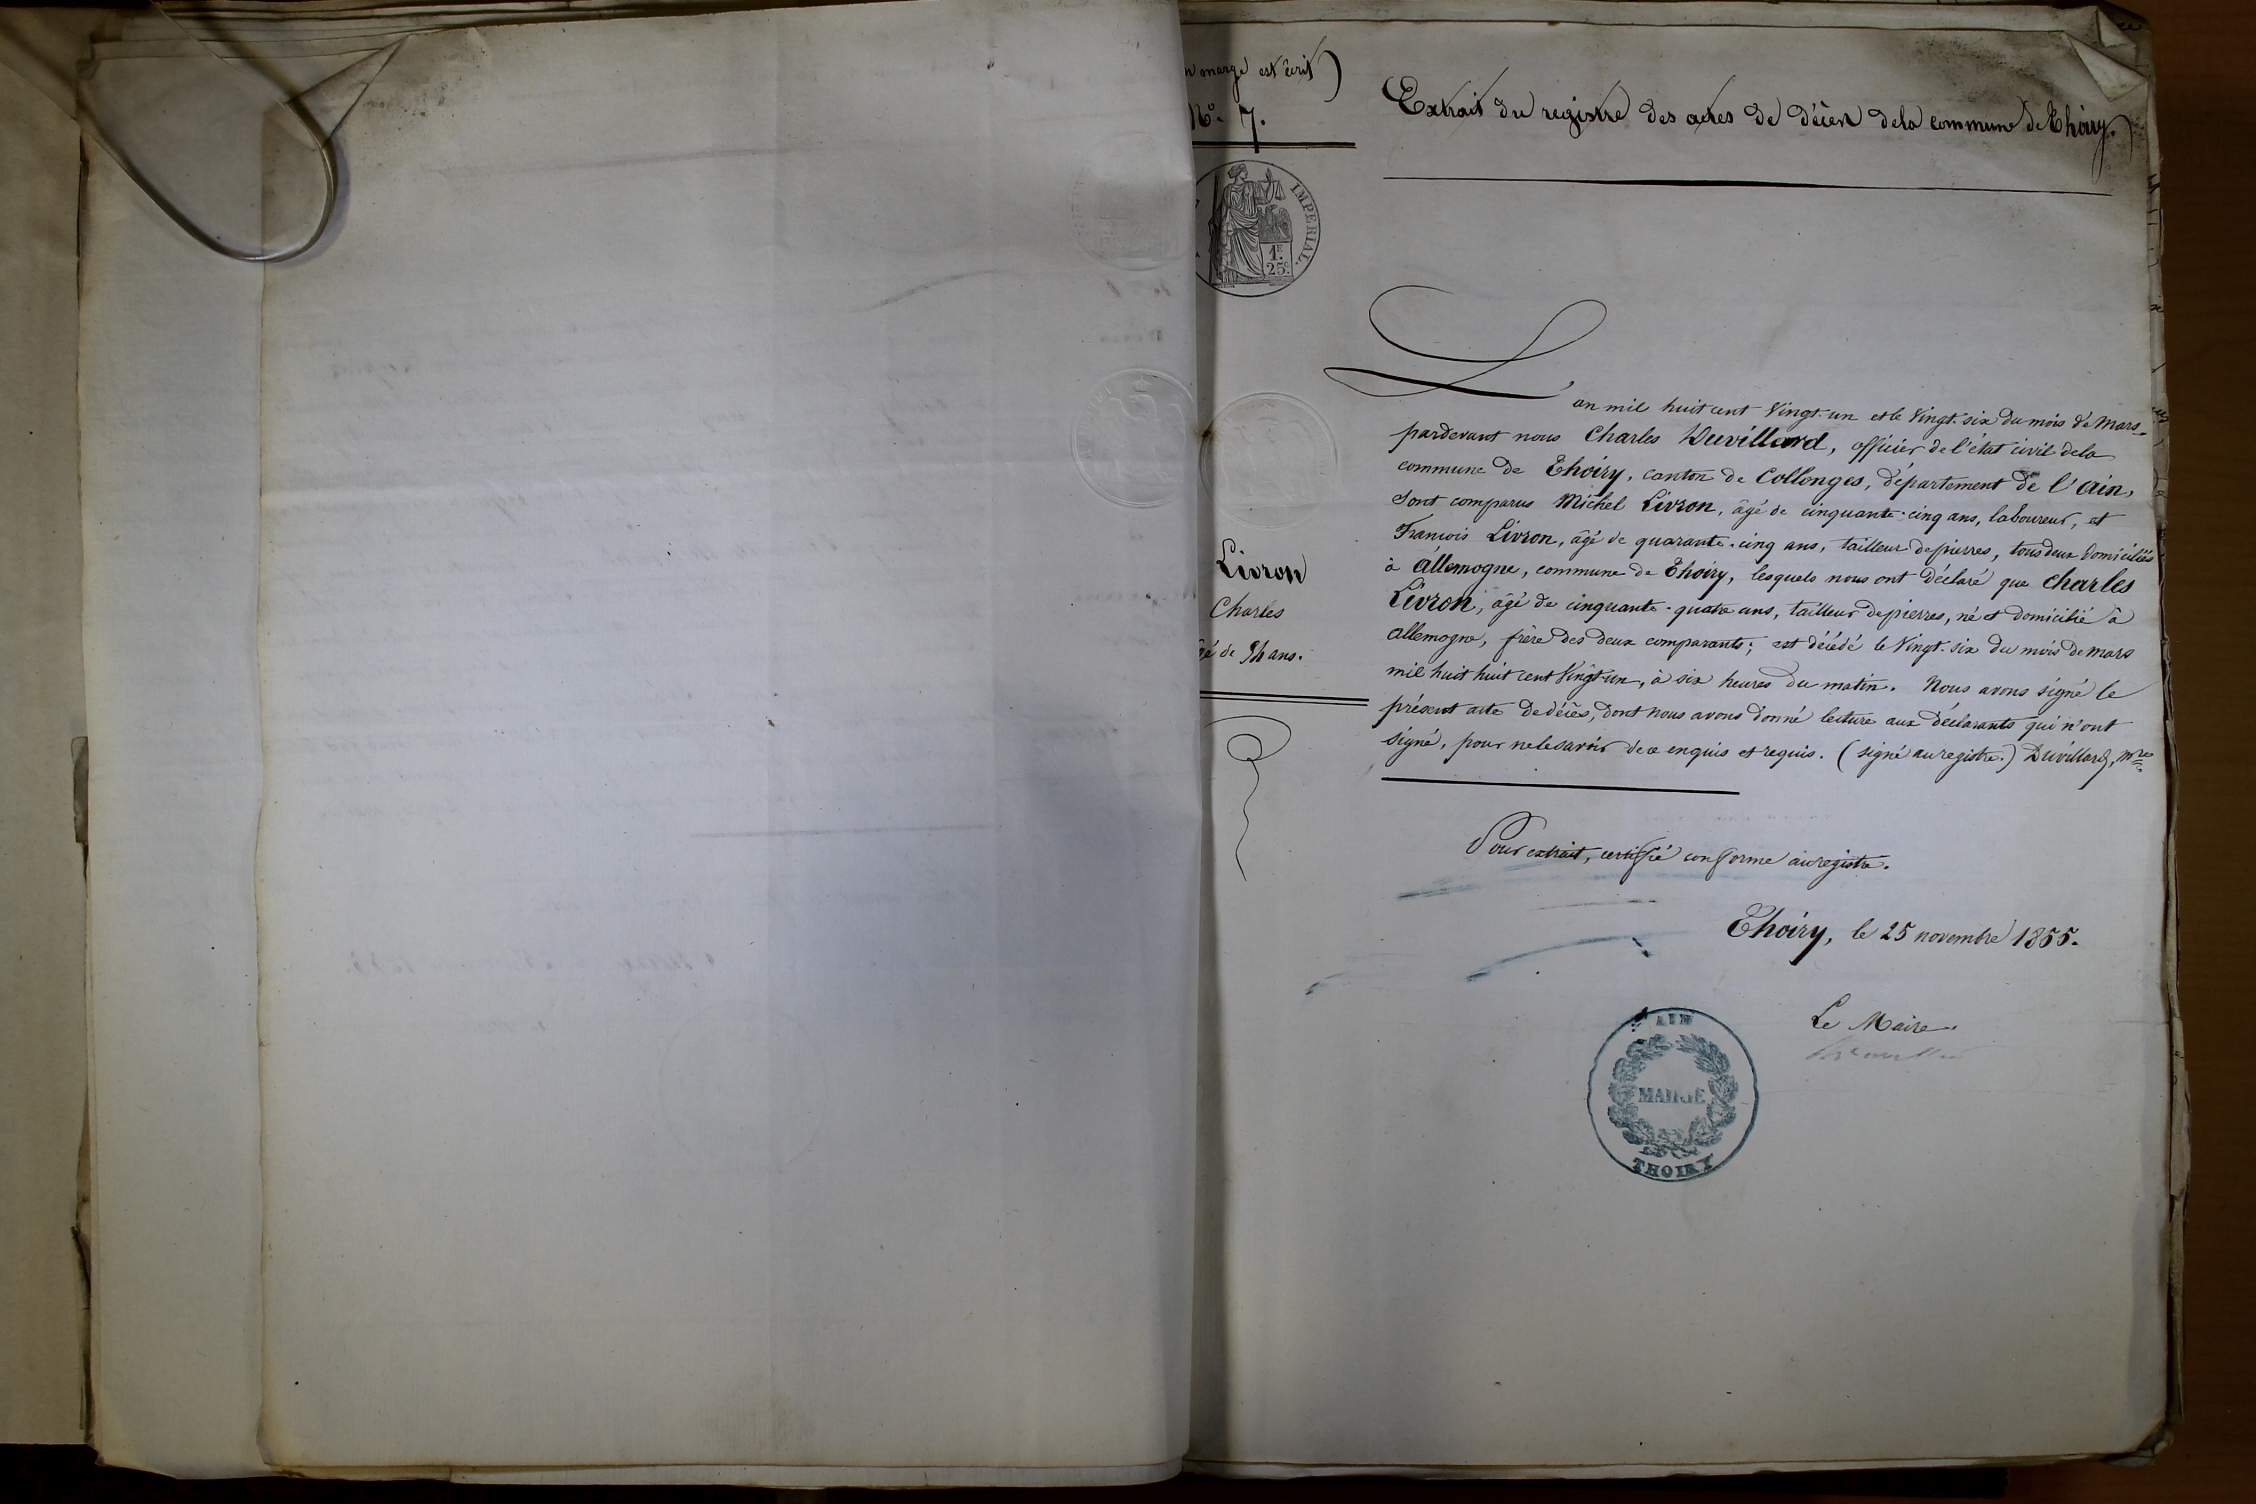 n marge est écrit)
N.° 7.
Extrait du registre des actes de décès de la commune de Thoiry.
IMPERIAL.
1F.
25c.
L'an mil huit cent vingt-un et le vingt-six du mois de Mars,
pardevant nous Charles Duvillard, officier de l'état civil de la
commune de Thoiry, canton de Collonges, département de l'Ain,
sont comparus Michel Livron, âgé de cinquante-cinq ans, laboureur, et
François Livron, âgé de quarante-cinq ans, tailleur de pierres, tous deux domiciliés
à Allemogne, commune de Thoiry, lesquels nous ont déclaré que Charles
Livron, âgé de cinquante-quatre ans, tailleur de pierres, né et domicilié à
Allemogne, frère des deux comparants; est décédé le vingt-six du mois de mars
mil huit huit cent vingt-un, à six heures du matin. Nous avons signé le
présent acte de décès, dont nous avons donné lecture aux déclarants qui n'ont
signé, pour ne le savoir de ce enquis et requis. (signé au registre.) Duvillard, mre
Livron
Charles
gé de 54 ans.
Pour extrait, certifié conforme au registre.
Thoiry, le 25 novembre 1855.
Le Maire.
AIN
MAIRIE
THOIRY